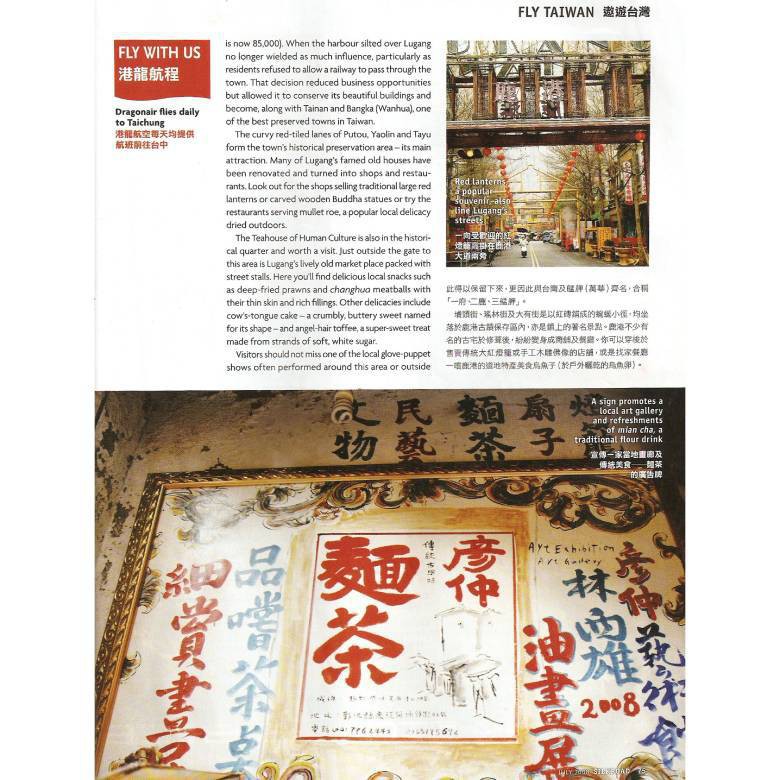 FLY TAIWAN 遨遊台灣
FLY WITH US
港龍航程
Dragonair flies daily
to Taichung
港龍航空每天均提供
航班前往台中
is now 85,000). When the harbour silted over Lugang
no longer wielded as much influence, particularly as
residents refused to allow a railway to pass through the
town. That decision reduced business opportunities
but allowed it to conserve its beautiful buildings and
become, along with Tainan and Bangka (Wanhua), one
of the best preserved towns in Taiwan.
The curvy red-tiled lanes of Putou, Yaolin and Tayu
form the town's historical preservation area – its main
attraction. Many of Lugang's famed old houses have
been renovated and turned into shops and restau-
rants. Look out for the shops selling traditional large red
lanterns or carved wooden Buddha statues or try the
restaurants serving mullet roe, a popular local delicacy
dried outdoors.
The Teahouse of Human Culture is also in the histori-
cal quarter and worth a visit. Just outside the gate to
this area is Lugang's lively old market place packed with
street stalls. Here you'll find delicious local snacks such
as deep-fried prawns and changhua meatballs with
their thin skin and rich fillings. Other delicacies include
cow's-tongue cake – a crumbly, buttery sweet named
for its shape – and angel-hair toffee, a super-sweet treat
made from strands of soft, white sugar.
Visitors should not miss one of the local glove-puppet
shows often performed around this area or outside
Red lanterns,
a popular
souvenir, also
line Lugang's
streets
一向受歡迎的紅
燈籠高掛在鹿港
大道兩旁
此得以保留下來，更因此與台南及艋舺（萬華）齊名，合稱
「一府、二鹿、三艋舺」。
埔頭街、瑤林街及大有街是以紅磚鋪成的蜿蜒小徑，均坐
落於鹿港古蹟保存區內，亦是鎮上的著名景點。鹿港不少有
名的古宅於修葺後，紛紛變身成商舖及餐廳。你可以穿梭於
售賣傳統大紅燈籠或手工木雕佛像的店舖，或是找家餐廳
一嚐鹿港的道地特產美食烏魚子（於戶外曬乾的烏魚卵）。
A sign promotes a
local art gallery
and refreshments
of mian cha, a
traditional flour drink
宣傳一家當地畫廊及
傳統美食——麵茶
的廣告牌
文物
民藝
麵茶
扇子
彦仲
麵茶
品嚐茶
細賞畫
Art Exhibition
Art Gallery
彦仲藝術
林
雄
油畫展
2008
JULY 2008 SILKROAD 75